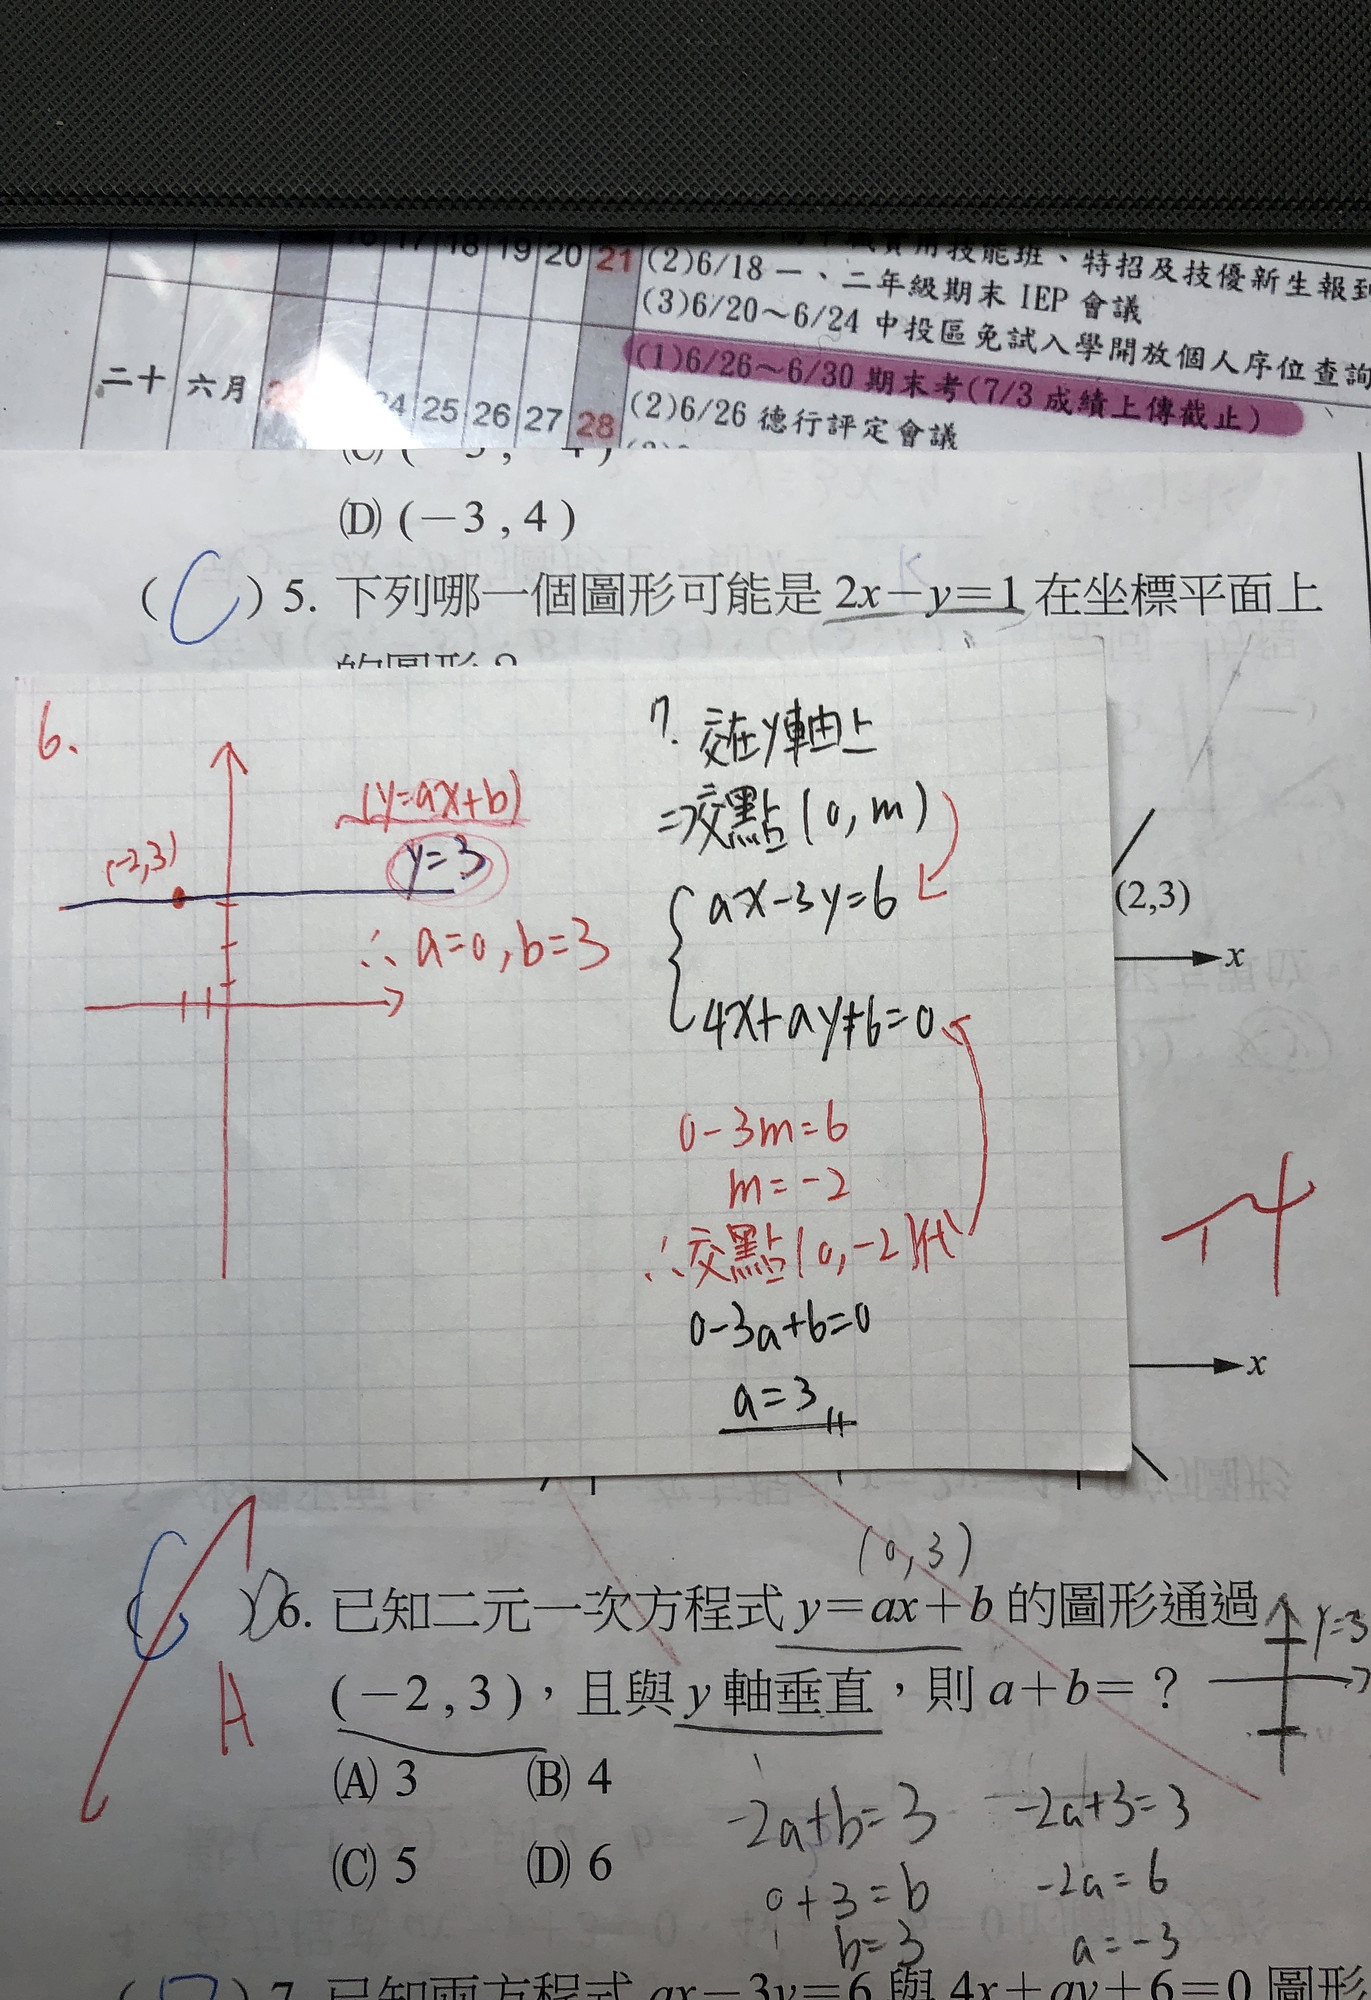 16 17 18 19 20 21
(2)6/18 一、二年級期末 IEP 會議
(3)6/20~6/24 中投區免試入學開放個人序位查詢
二十 六月 24 25 26 27 28
(1)6/26~6/30 期末考(7/3 成績上傳截止)
(2)6/26 德行評定會議
(D) (−3 , 4)
( C ) 5. 下列哪一個圖形可能是 2x−y=1 在坐標平面上
的圖形?
6.
(y=ax+b)
y=3
(-2,3)
∴ a=0, b=3
7. 交在y軸上
⇒交點(0, m)
ax-3y=6
4x+ay+6=0
0-3m=6
m=-2
∴交點(0,-2)代
0-3a+6=0
a=3
(2,3)
x
x
(0,3)
6. 已知二元一次方程式 y=ax+b 的圖形通過
(−2 , 3),且與 y 軸垂直,則 a+b= ?
y=3
A
(A) 3 (B) 4
(C) 5 (D) 6
-2a+b=3
0+3=b
b=3
-2a+3=3
-2a=6
a=-3
7. 已知兩方程式 ax−3y=6 與 4x+ay+6=0 圖形